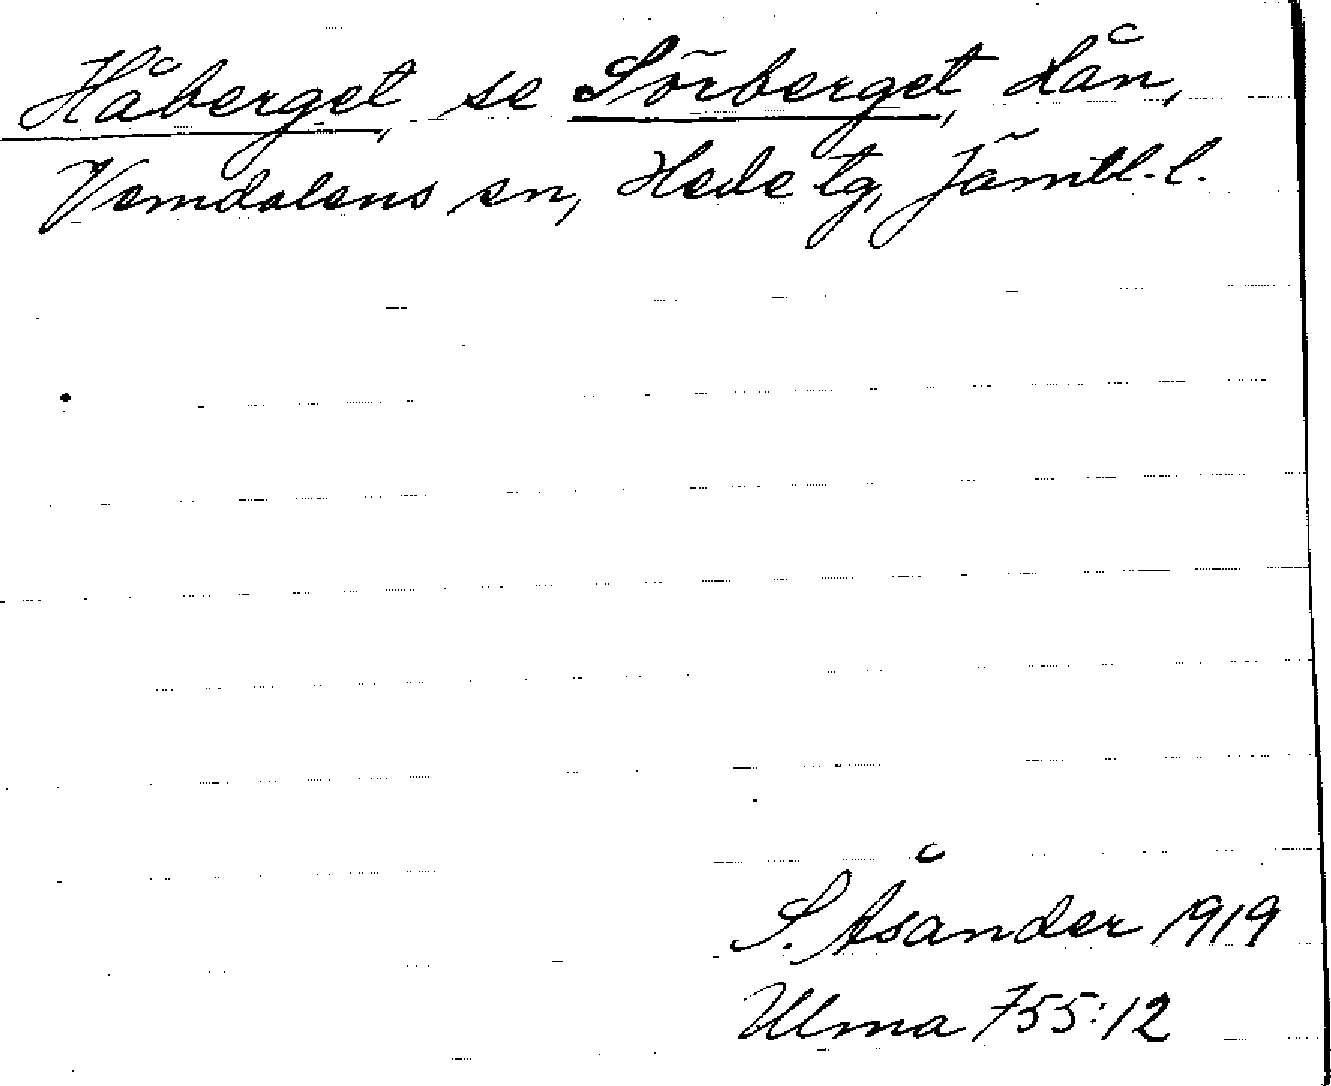 Håberget, se Sörberget, Lån,
Vemdalens sn, Hede tg, Jämtl. l.
S. Åsander 1919
Ulma 755:12